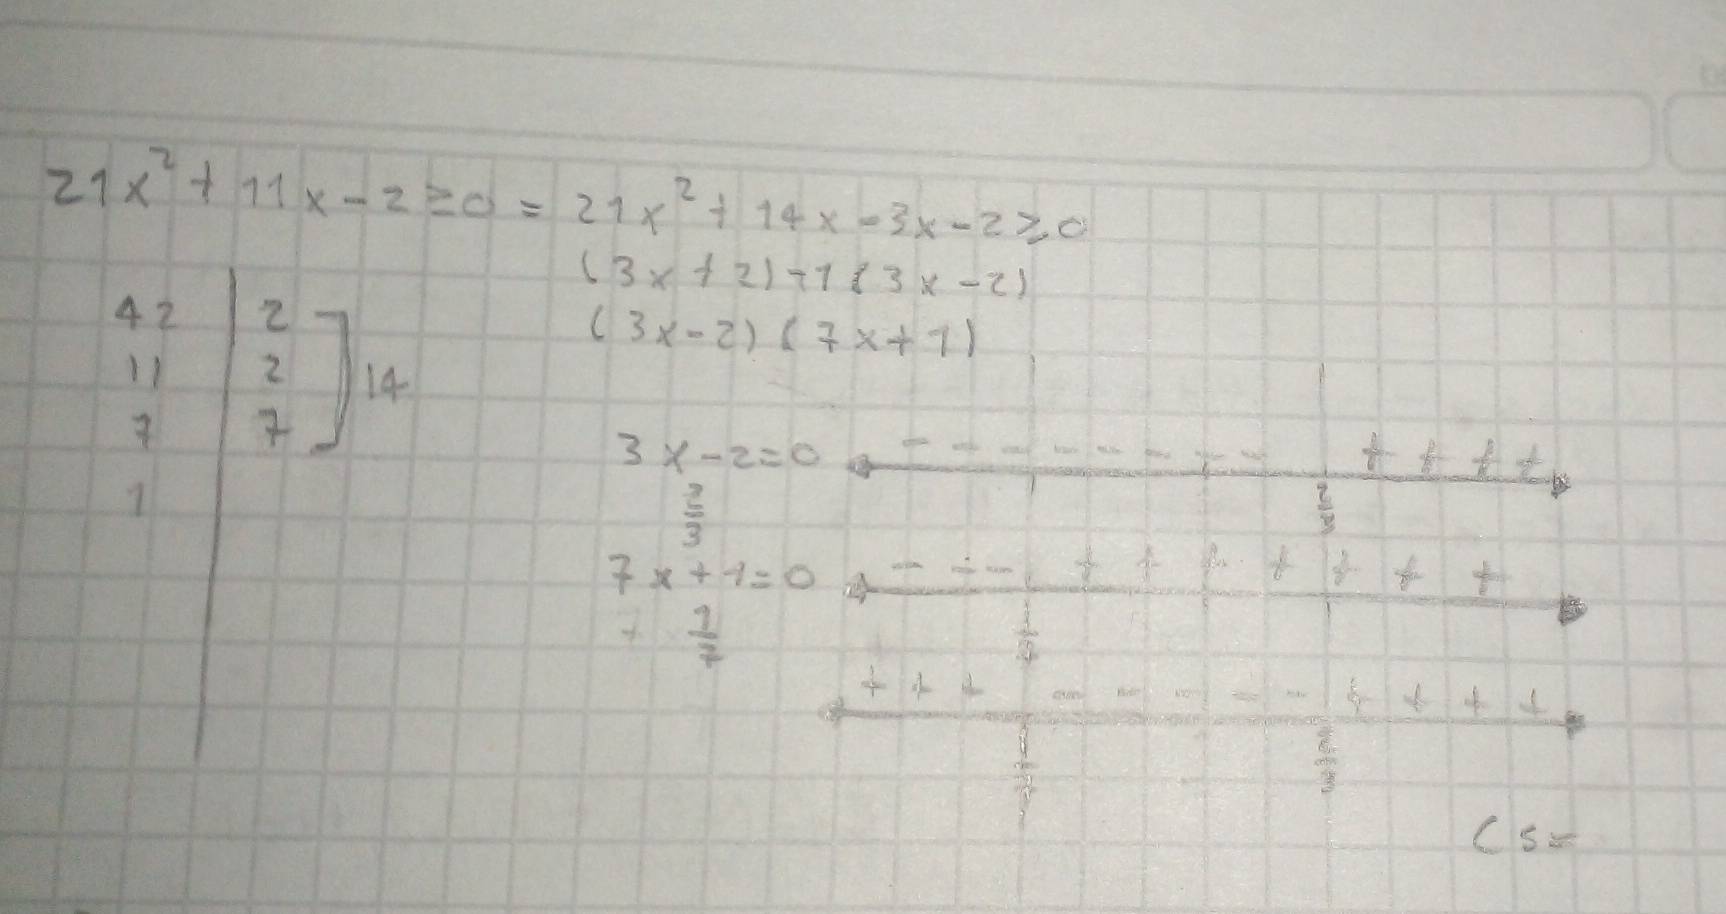 21x² + 11x - 2 ≥ 0 = 21x² + 14x - 3x - 2 ≥ 0
(3x + 2) - 1 (3x - 2)
(3x - 2) (7x + 1)
42 | 2
11 | 2 14
7 | 7
1
3x - 2 = 0 - - - - - - - - + + + +
2/3 2/3
7x + 1 = 0 - - - + + + + + + +
1/7 1/7
+ + + - - - - - + + + +
CS =